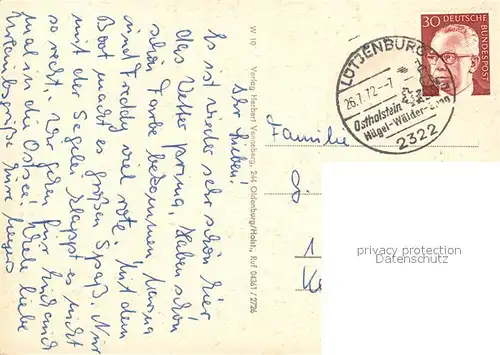 Ihr Lieben!
Es ist wieder sehr schön hier
das Wetter prima, haben schön
schön Farbe bekommen,
und Freddy viel rote. Mit dem
Boot macht es großen Spaß. Nur
mit der Segelei klappt es nicht
so recht. Wir gehen für Euch mit
mal in die Ostsee! Viele liebe
Urlaubsgrüße Eure
W 10 Verlag Herbert Venneberg, 244 Oldenburg/Holst., Ruf 04361/2726
30 DEUTSCHE
BUNDESPOST
LÜTJENBURG
26.7.72.-7
Ostholstein
Hügel-Wälder-
2322
Familie
privacy protection
Datenschutz